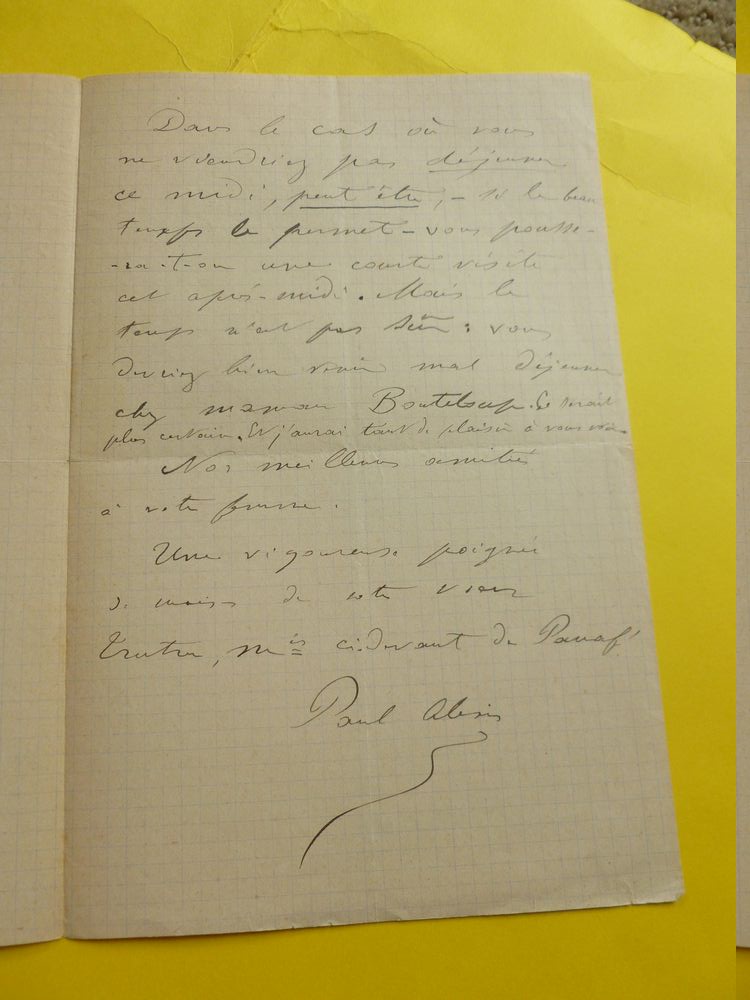 Dans le cas où vous
ne viendriez pas déjeuner
ce midi, peut être, - si le beau
temps le permet - vous pousse-
-ra-t-on une courte visite
cet après-midi. Mais le
temps n'est pas sûr : vous
devriez bien venir mal déjeuner
chez maman Bouteloup. Ce serait
plus certain. Et j'aurai tant de plaisir à vous voir.
Nos meilleures amitiés
à votre femme.
Une vigoureuse poignée
de mains de votre vieux
, mis ci-devant de
Paul Alexis